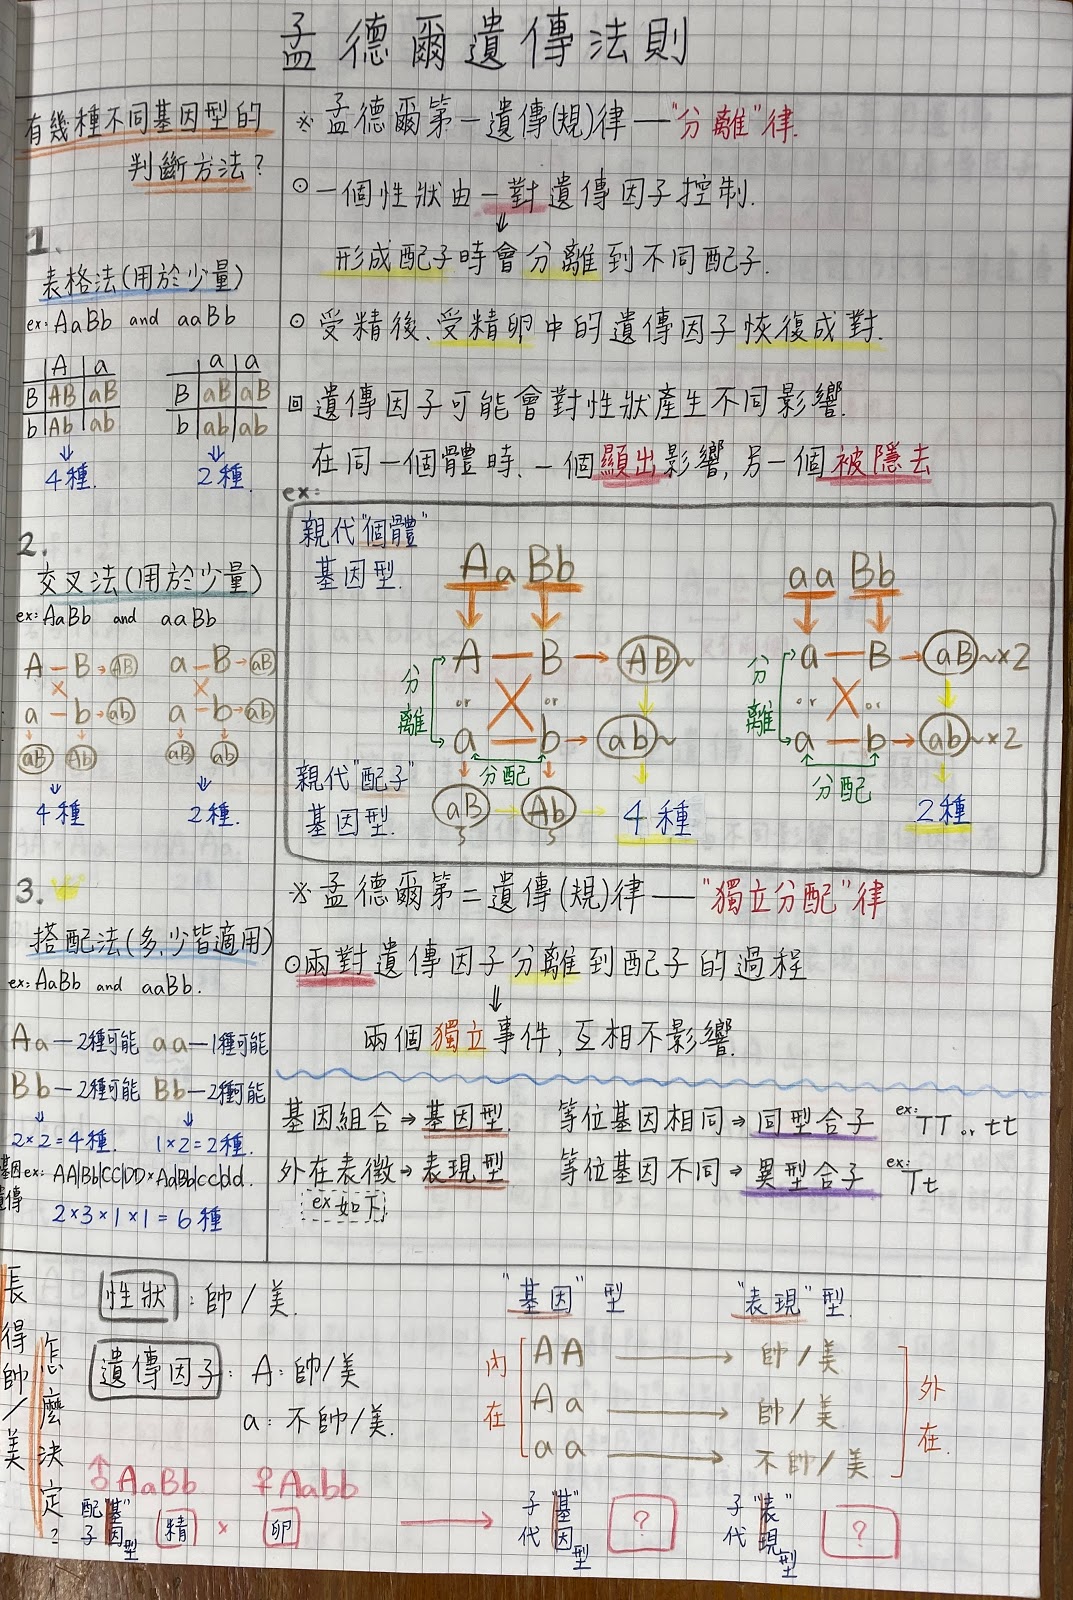 孟德爾遺傳法則
有幾種不同基因型的
判斷方法?
1.
表格法(用於少量)
ex: AaBb and aaBb
A a
B AB aB
b Ab ab
4種.
a a
B aB aB
b ab ab
2種.
2.
交叉法(用於少量)
ex: AaBb and aaBb
A — B → AB
a — b → ab
aB Ab
4種
a — B → aB
a — b → ab
aB ab
2種.
3.
搭配法(多、少皆適用)
ex: AaBb and aaBb.
Aa — 2種可能 aa — 1種可能
Bb — 2種可能 Bb — 2種可能
2×2=4種. 1×2=2種.
基因遺傳 ex: AA|Bb|CC|DD × Aa|Bb|cc|dd.
2×3×1×1=6種
※孟德爾第一遺傳(規)律—"分離"律.
⊙一個性狀由一對遺傳因子控制.
⇓
形成配子時會分離到不同配子.
⊙受精後、受精卵中的遺傳因子恢復成對.
回遺傳因子可能會對性狀產生不同影響.
在同一個體時、一個顯出影響,另一個被隱去
ex:
親代"個體"
基因型.
AaBb
A — B → AB~
or or
a — b → ab~
分離
分配
aB → Ab → 4種
親代"配子"
基因型.
aaBb
a — B → aB~×2
or or
a — b → ab~×2
分離
分配
2種
※孟德爾第二遺傳(規)律—"獨立分配"律
⊙兩對遺傳因子分離到配子的過程
⇓
兩個獨立事件,互相不影響.
基因組合⇒基因型. 等位基因相同⇒同型合子 ex: TT or tt
外在表徵⇒表現型 等位基因不同⇒異型合子 ex: Tt
ex如下
長得帥/美
怎麼決定?
性狀:帥/美.
遺傳因子: A:帥/美
a:不帥/美.
"基因"型 "表現"型.
內在
AA → 帥/美
Aa → 帥/美
aa → 不帥/美
外在.
♂AaBb ♀Aabb
配子"基因"型 精 × 卵 → 子代"基因"型 ? 子代"表現"型 ?